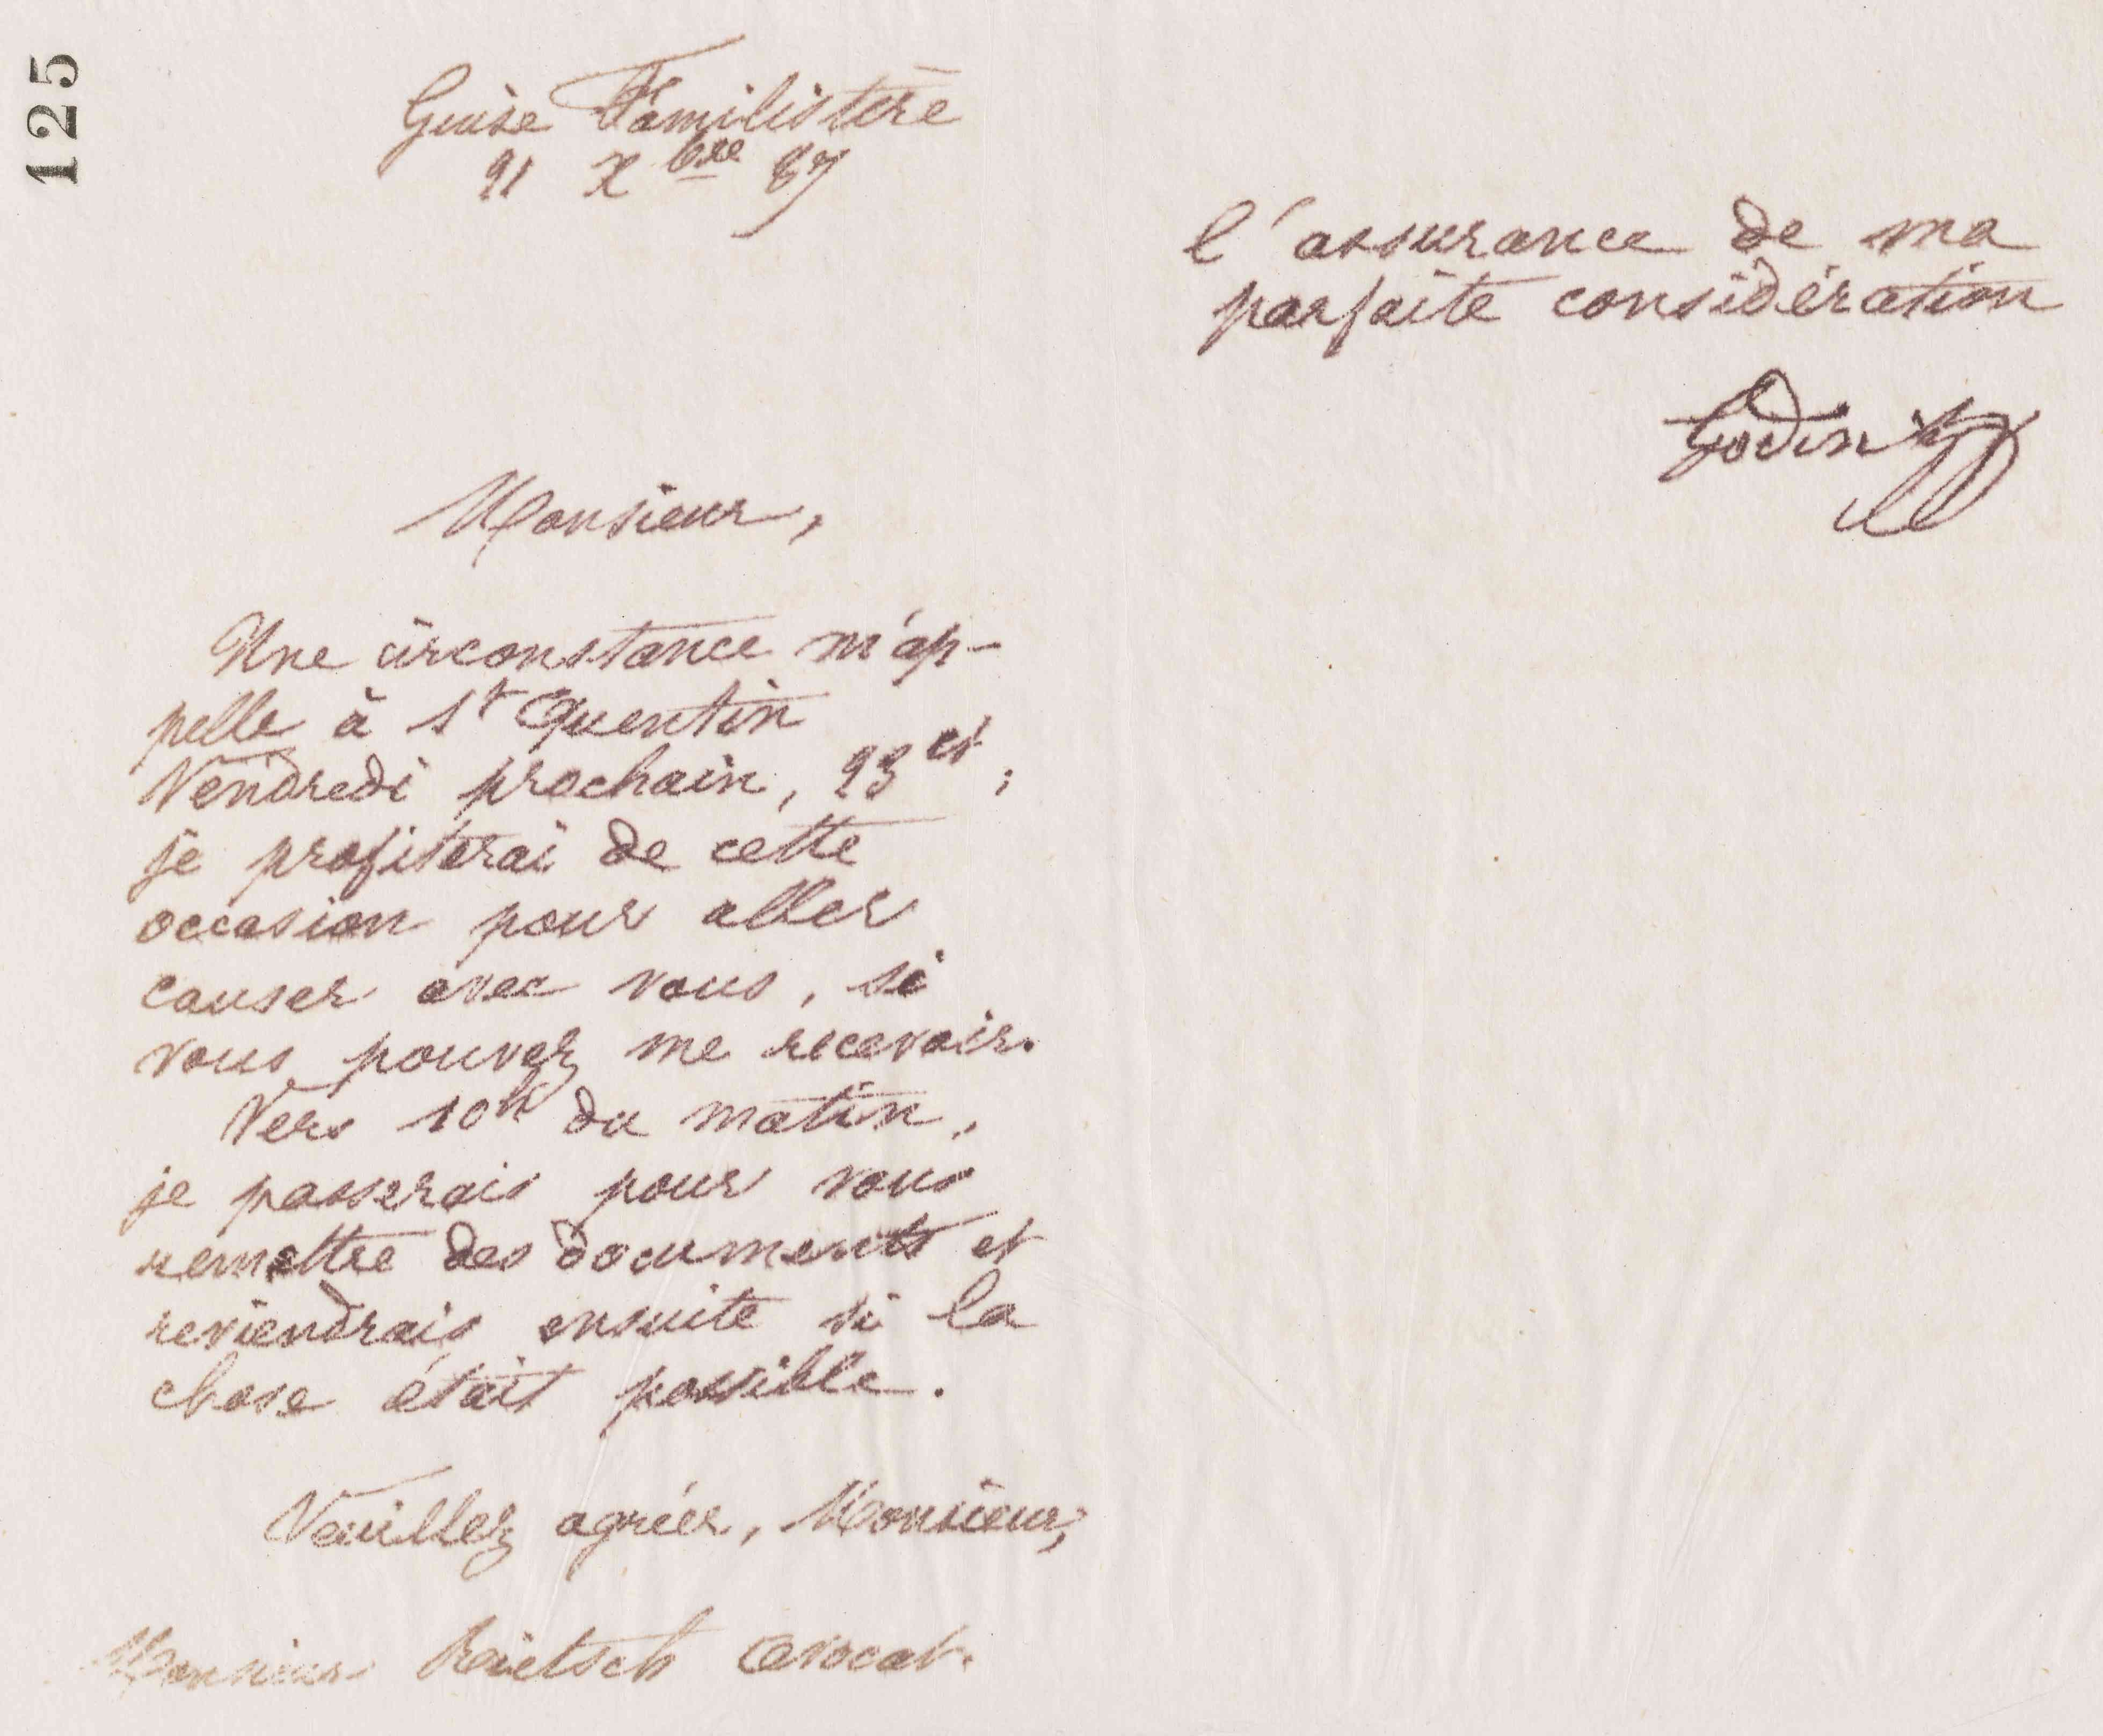 125
Guise Familistère
21 X bre 87
Monsieur,
Une circonstance m'ap-
pelle à St Quentin
Vendredi prochain, 23 ct;
je profiterai de cette
occasion pour aller
causer avec vous, si
vous pouvez me recevoir.
Vers 10h du matin,
je passerais pour vous
remettre des documents et
reviendrais ensuite si la
chose était possible.
Veuillez agréer, Monsieur,
Monsieur Avocat.
l'assurance de ma
parfaite considération
Godin